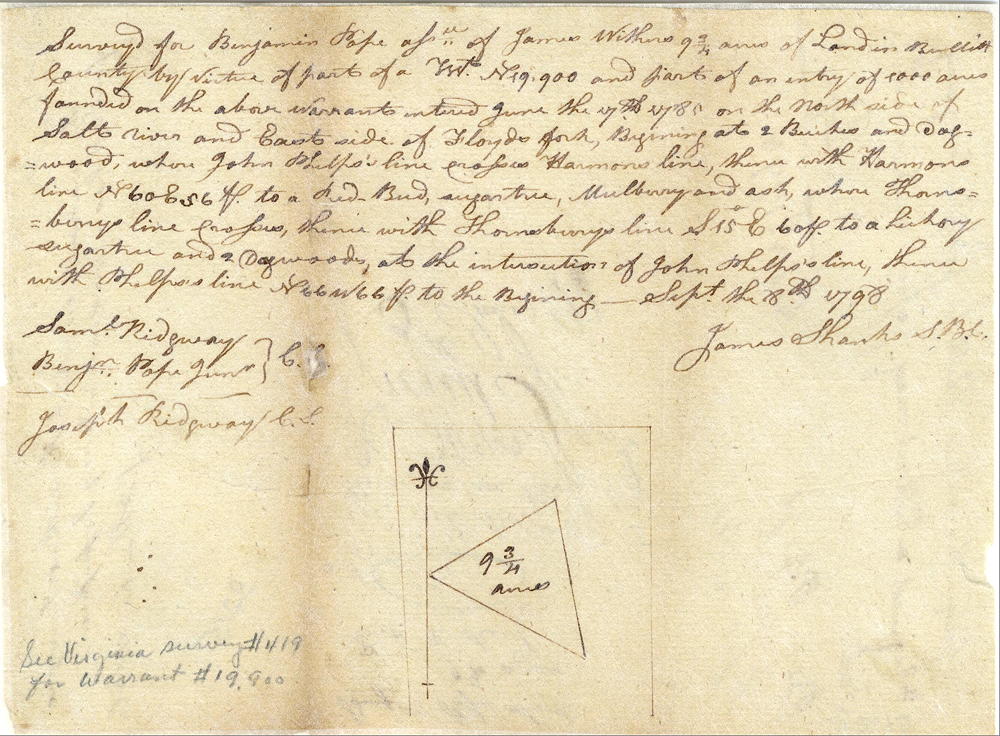 Survey'd for Benjamin Pope assee of James Withers 9 3/4 acres of Land in Bullitt
County by virtue of part of a Wt. No 19.900 and part of an entry of 1000 acres
founded on the above warrant entered June the 17th 1785 on the North side of
Salt river and East side of Floyds fork, Begining at 2 Beches and Dog=
=wood, where John Phelps's line crosses Harmons line, thence with Harmons
line N60E56 ps. to a Red-Bud, sugartree, Mulberry and ash, where Thorns=
=berrys line crosses, thence with Thornsberrys line S15° E 60 ps. to a hickory
sugartree and 2 Dogwoods, at the intersection of John Phelps's line, thence
with Phelps's line N66W66 ps. to the Begining — Sept. the 28th 1798
Saml. Ridgway
Benjn. Pope Junr } C. C.
James Shanks S.B.C.
Joseph Ridgway C. C.
9 3/4
acres
See Virginia survey #419
for Warrant #19,900